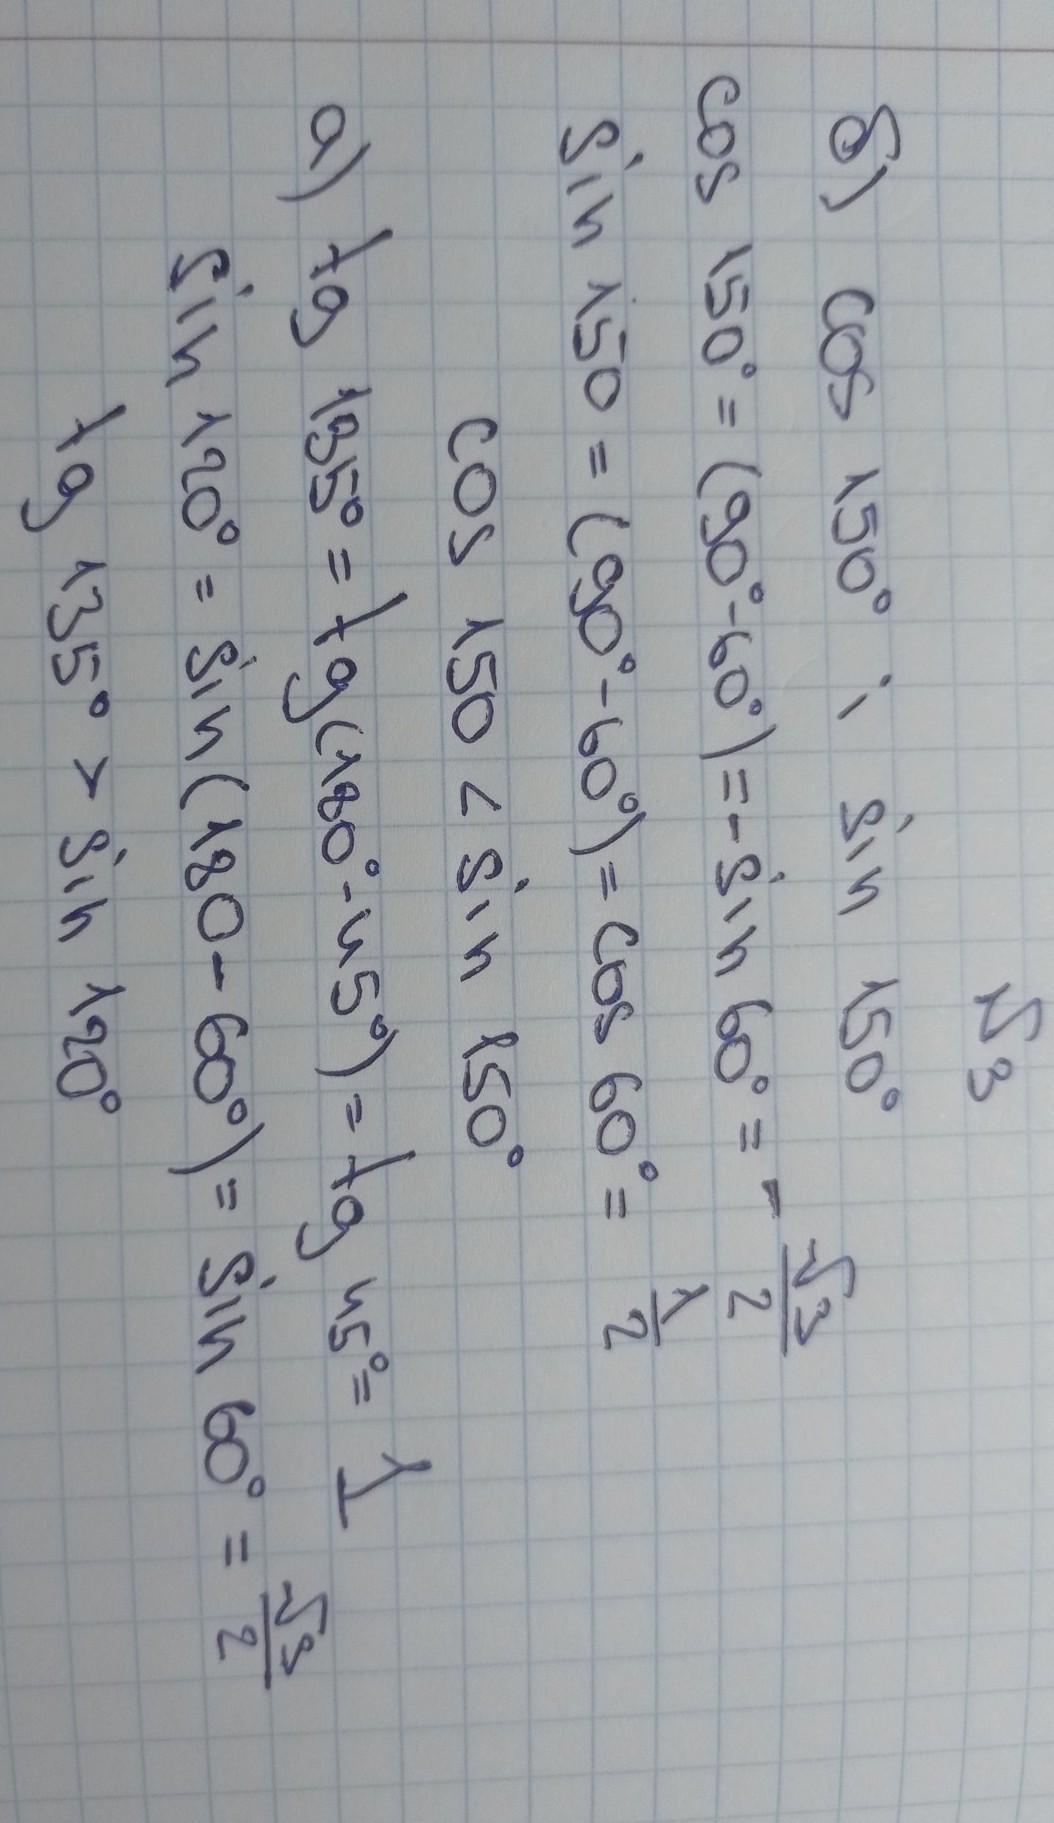 √3
б) cos 150° і sin 150°
cos 150° = (90°-60°) = - sin 60° = - √3/2
sin 150 = (90°-60°) = cos 60° = 1/2
cos 150 < sin 150°
а) tg 135° = tg(180°-45°) = tg 45° = 1
sin 120° = sin(180-60°) = sin 60° = √3/2
tg 135° > sin 120°